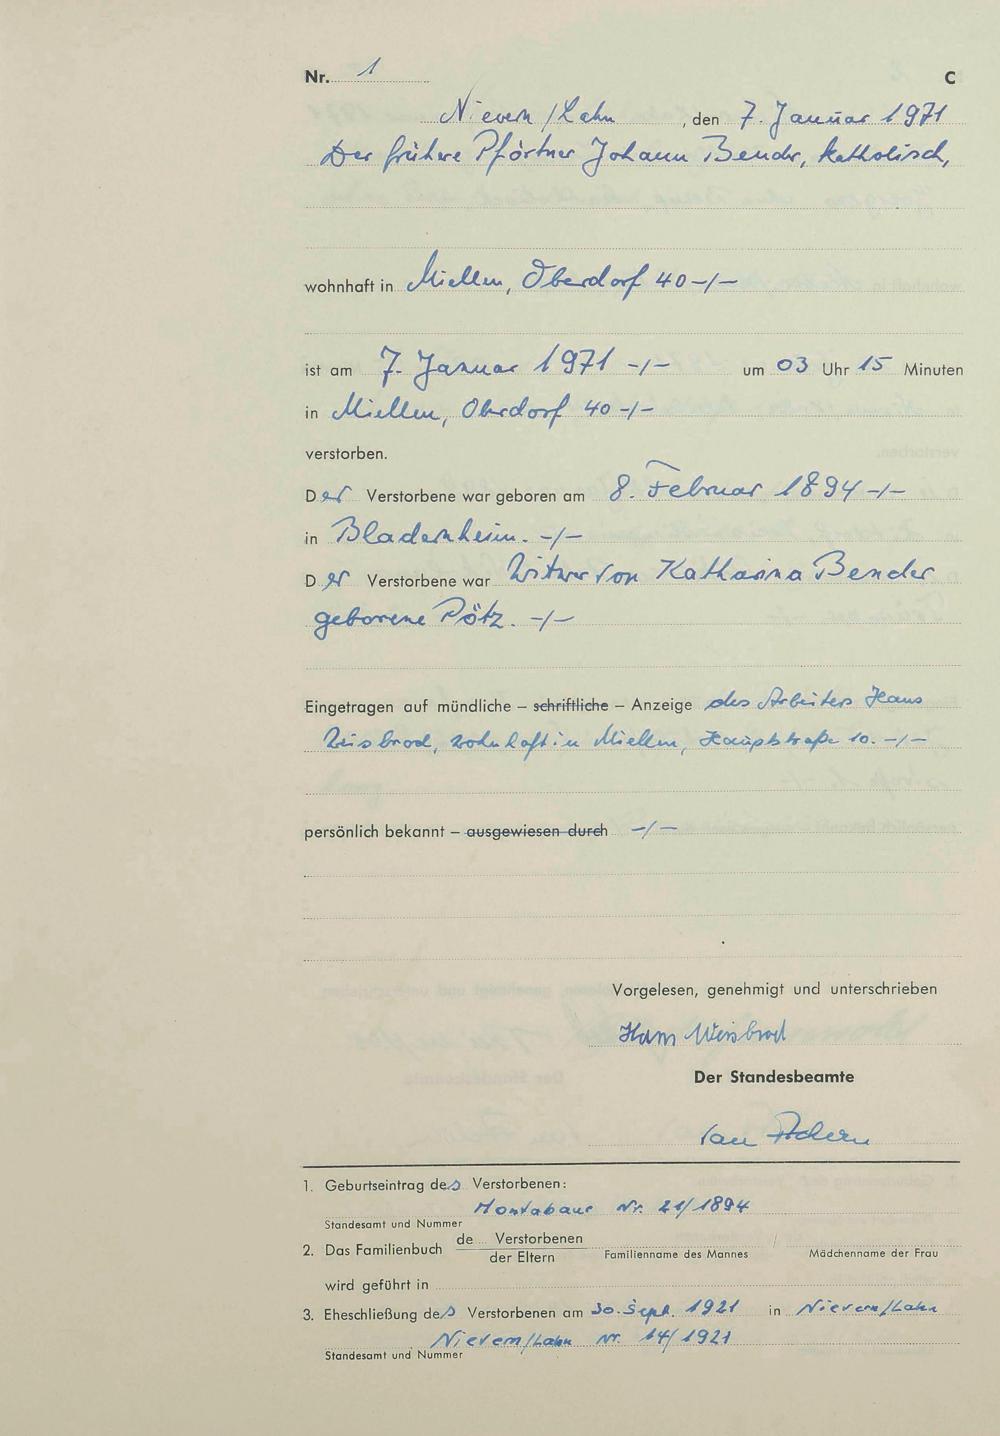 Nr. 1 C
Nievern/Lahn, den 7. Januar 1971
Der frühere Pförtner Johann Bender, katholisch,
wohnhaft in Miellen, Oberdorf 40 -/-
ist am 7. Januar 1971 -/- um 03 Uhr 15 Minuten
in Miellen, Oberdorf 40 -/-
verstorben.
Der Verstorbene war geboren am 8. Februar 1894 -/-
in Bladernheim. -/-
Der Verstorbene war Witwer von Katharina Bender
geborene Pötz. -/-
Eingetragen auf mündliche – schriftliche – Anzeige des Arbeiters Hans
Weisbrod, wohnhaft in Miellen, Hauptstraße 10. -/-
persönlich bekannt – ausgewiesen durch -/-
Vorgelesen, genehmigt und unterschrieben
Hans Weisbrod
Der Standesbeamte
1. Geburtseintrag des Verstorbenen:
Montabaur Nr. 21/1894
Standesamt und Nummer
2. Das Familienbuch de Verstorbenen
der Eltern Familienname des Mannes / Mädchenname der Frau
wird geführt in
3. Eheschließung des Verstorbenen am 30. Sept. 1921 in Nievern/Lahn
Nievern/Lahn Nr. 14/1921
Standesamt und Nummer